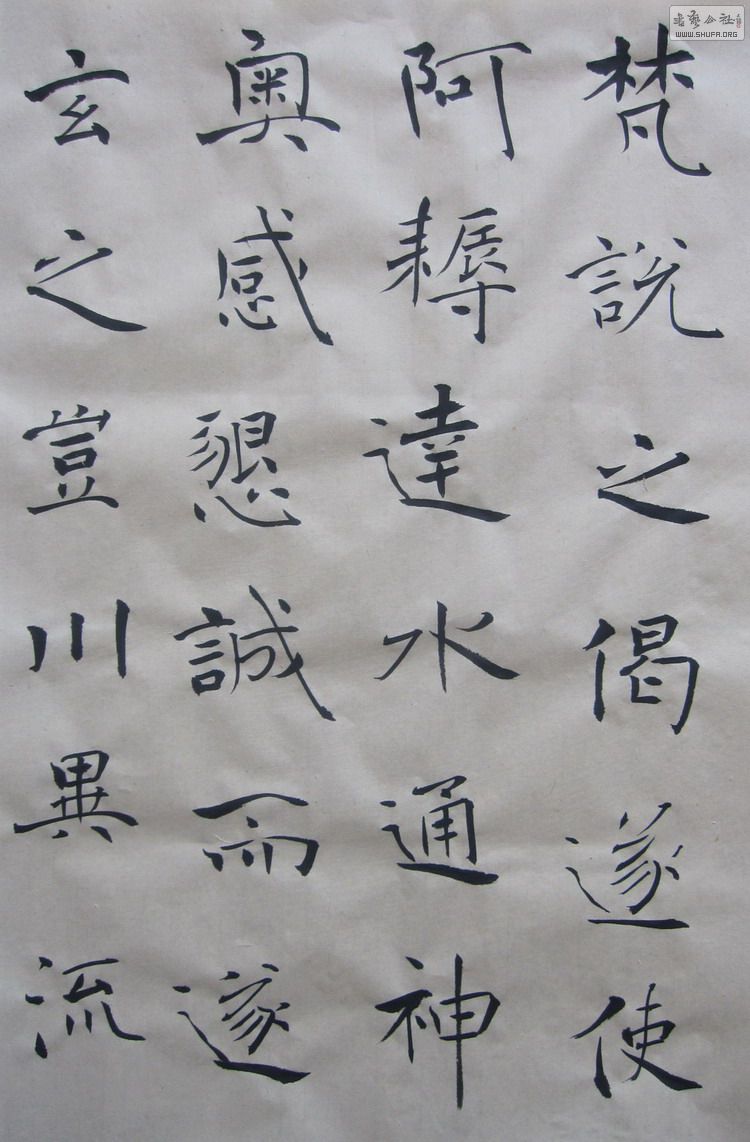 梵說之偈遂使
阿耨達水通神
奧感懇誠而遂
玄之豈川異流
WWW.SHUFA.ORG